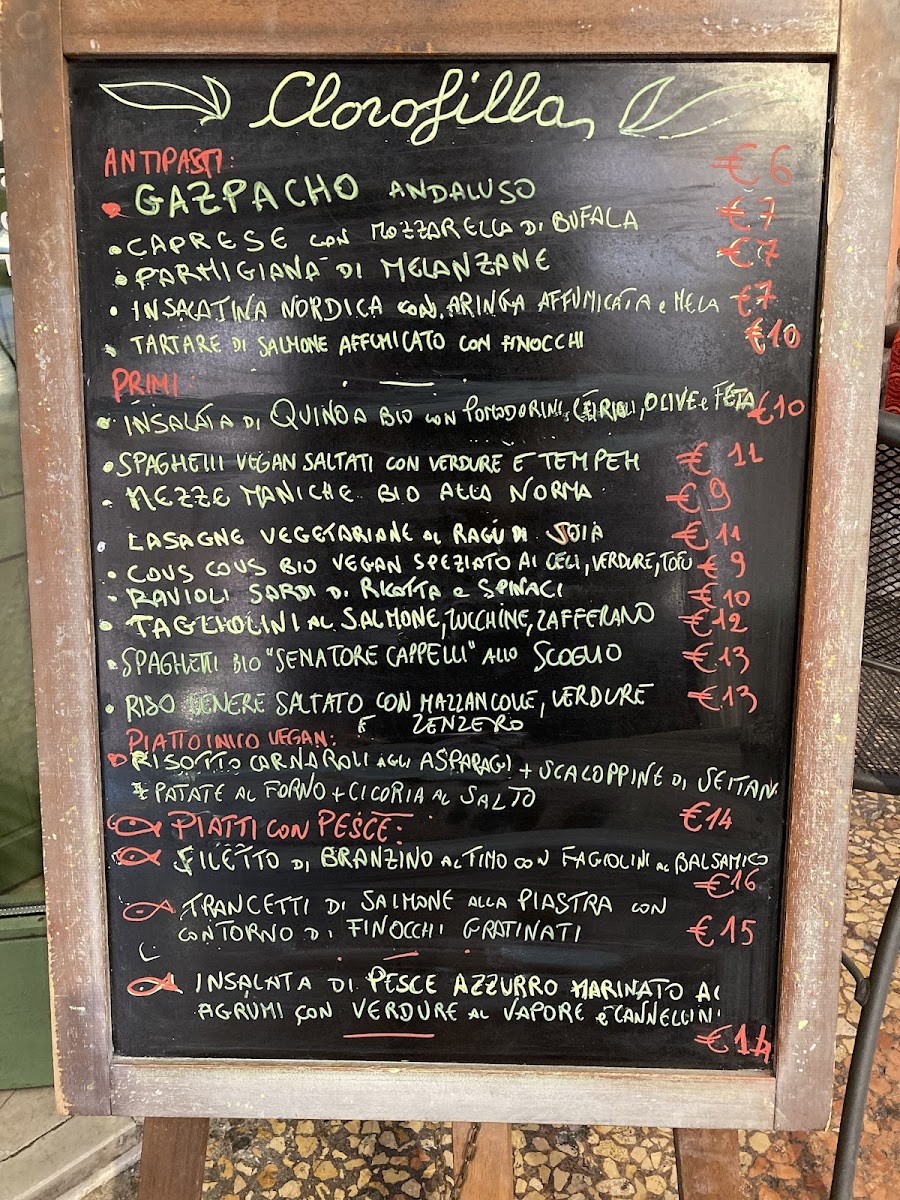 Clorofilla
ANTIPASTI:
GAZPACHO ANDALUSO €6
CAPRESE CON MOZZARELLA DI BUFALA €7
PARMIGIANA DI MELANZANE €7
INSALATINA NORDICA CON ARINGA AFFUMICATA e MELA €7
TARTARE DI SALMONE AFFUMICATO CON FINOCCHI €10
PRIMI:
INSALATA DI QUINOA BIO CON POMODORINI, CETRIOLI, OLIVE e FETA €10
SPAGHETTI VEGAN SALTATI CON VERDURE E TEMPEH € 11
MEZZE MANICHE BIO ALLA NORMA €9
LASAGNE VEGETARIANE AL RAGÙ DI SOIA €11
COUS COUS BIO VEGAN SPEZIATO AI CECI, VERDURE, TOFU €9
RAVIOLI SARDI DI RICOTTA e SPINACI €10
TAGLIOLINI AL SALMONE, ZUCCHINE, ZAFFERANO €12
SPAGHETTI BIO "SENATORE CAPPELLI" ALLO SCOGLIO €13
RISO VENERE SALTATO CON MAZZANCOLLE, VERDURE €13
E ZENZERO
PIATTO UNICO VEGAN:
RISOTTO CARNAROLI AGLI ASPARAGI + SCALOPPINE DI SEITAN
+ PATATE AL FORNO + CICORIA AL SALTO
€14
PIATTI CON PESCE:
FILETTO DI BRANZINO AL TIMO CON FAGIOLINI AL BALSAMICO
€16
TRANCETTI DI SALMONE ALLA PIASTRA CON
CONTORNO DI FINOCCHI GRATINATI €15
INSALATA DI PESCE AZZURRO MARINATO AI
AGRUMI CON VERDURE AL VAPORE e CANNELLINI
€14